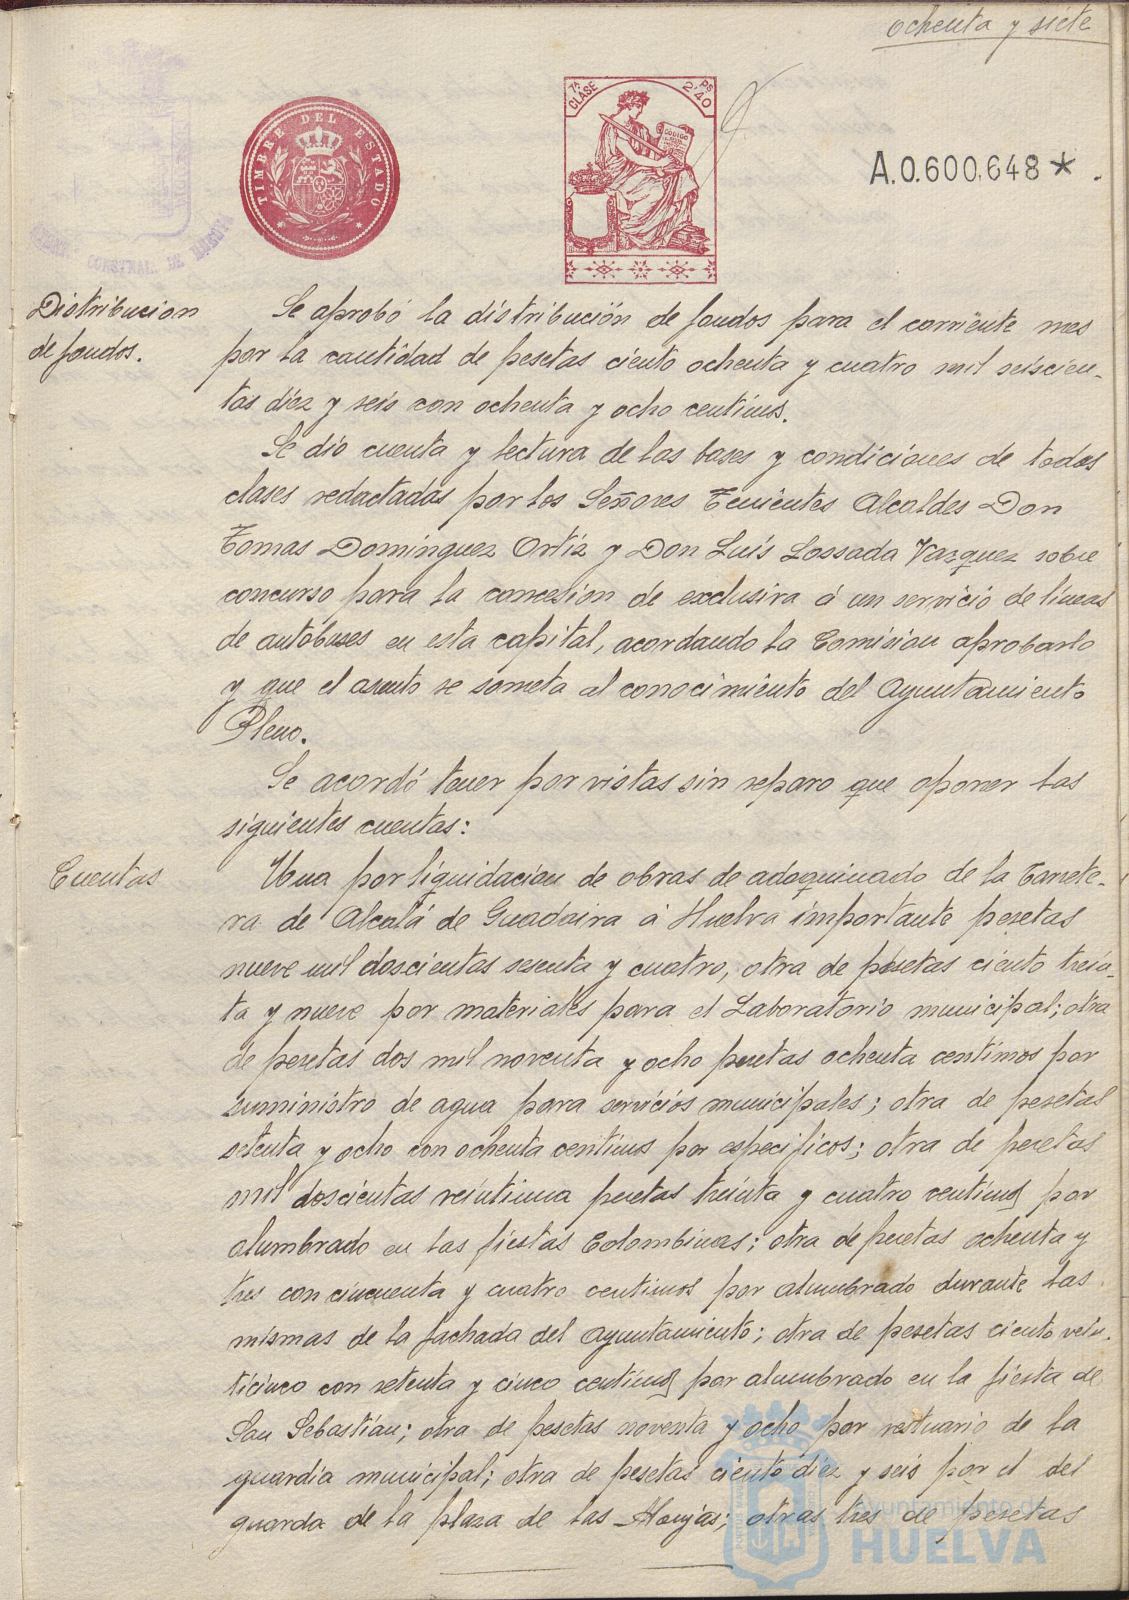 ochenta y siete
TIMBRE DEL ESTADO
7ª CLASE
PS 2'40
CODIGO
A.0.600.648 *
CONSTNAL. DE HUELVA
Distribucion
de fondos.
Se aprobó la distribución de fondos para el corriente mes
por la cantidad de pesetas ciento ochenta y cuatro mil seiscien-
tas diez y seis con ochenta y ocho centims.
Se dió cuenta y lectura de las bases y condiciones de todas
clases redactadas por los Señores Tenientes Alcaldes Don
Tomas Dominguez Ortiz y Don Luis Lossada Vazquez sobre
concurso para la concesion de exclusiva á un servicio de lineas
de autobuses en esta capital, acordando la Comision aprobarlo
y que el asunto se someta al conocimiento del Ayuntamiento
Pleno.
Se acordó tener por vistas sin reparo que oponer las
siguientes cuentas:
Cuentas
Una por liquidacion de obras de adoquinado de la Carrete-
ra de Alcalá de Guadaira á Huelva importante pesetas
nueve mil doscientas sesenta y cuatro, otra de pesetas ciento trein-
ta y nueve por materiales para el Laboratorio municipal; otra
de pesetas dos mil noventa y ocho pesetas ochenta centimos por
suministro de agua para servicios municipales; otra de pesetas
setenta y ocho con ochenta centims por especificos; otra de pesetas
mil doscientas veintiuna pesetas treinta y cuatro centims por
alumbrado en las fiestas Colombinas; otra de pesetas ochenta y
tres con cincuenta y cuatro centimos por alumbrado durante las
mismas de la fachada del Ayuntamiento; otra de pesetas ciento vein-
ticinco con setenta y cinco centims por alumbrado en la fiesta de
San Sebastián; otra de pesetas noventa y ocho por vestuario de la
guardia municipal; otra de pesetas ciento diez y seis por el del
guarda de la plaza de las Monjas; otras tres de pesetas
ayuntamiento de
HUELVA